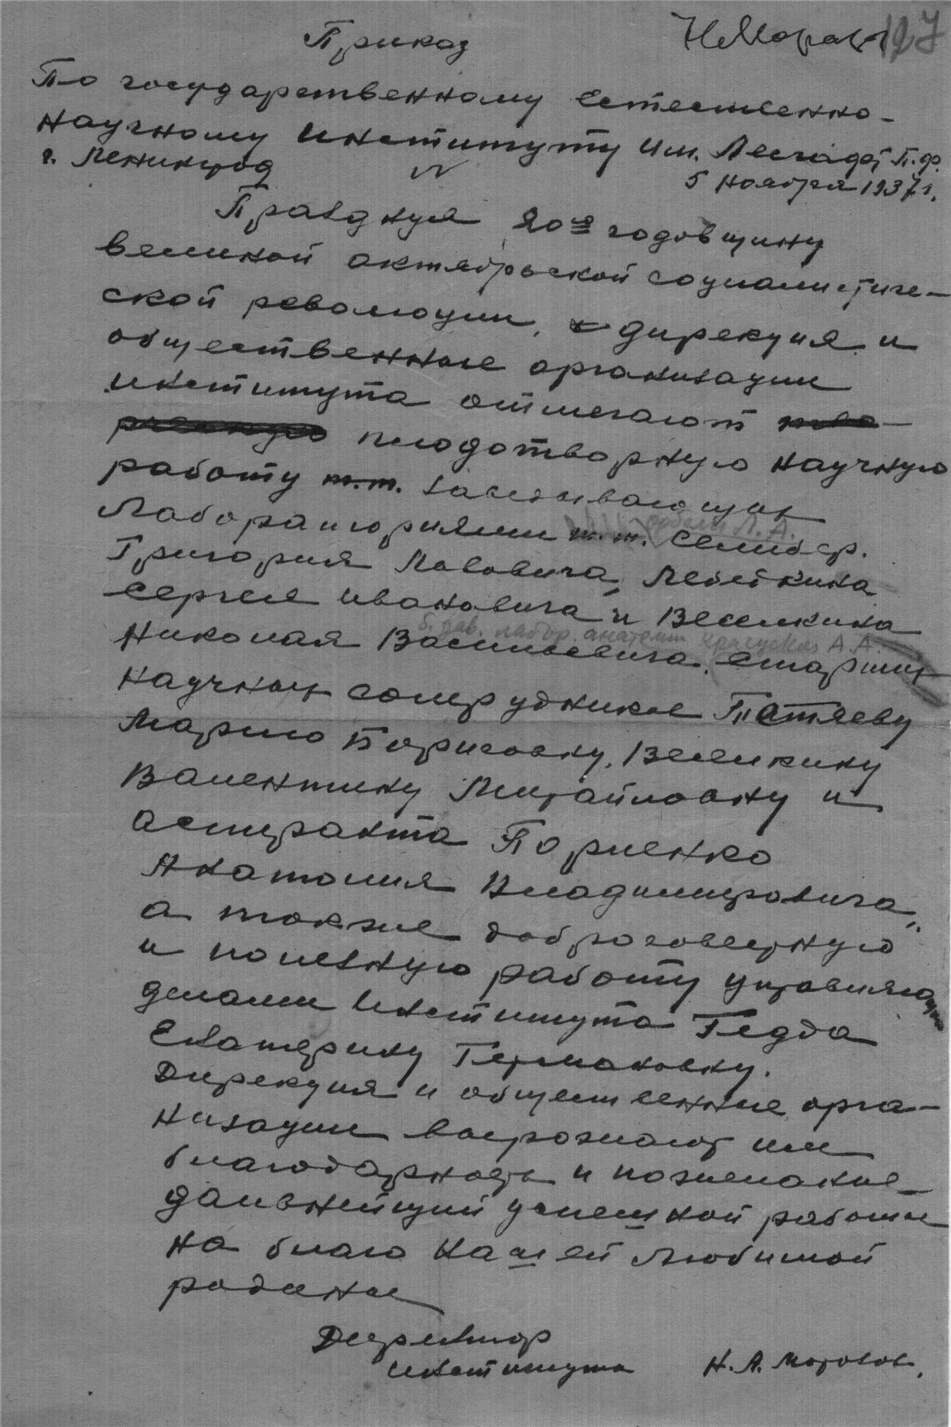 Приказ
Н Морозов 127
По государственному Естественно-
Научному Институту Им. Лесгафт П.Ф.
г. Ленинград
№
5 ноября 1937 г.
Празднуя 20ую годовщину
великой октябрьской социалистиче-
ской революции, дирекция и
общественные организации
института отмечают
плодотворную научную
работу т.т. Заведывающих
Орбели Л.А.
Лабораториями т.т. Селибер.
Григория Львовича, Лебедкина
Сергея Ивановича и Веселкина
б. зав. лабор. анатомии Красуская А.А.
Николая Васильевича, старших
научных сотрудников Тетяеву
Марию Борисовну, Веселкину
Валентину Михайловну и
аспиранта Париенко
Анатолия Владимировича,
а также добросовестную
и полезную работу управляющ
делами Института Гедда
Екатерину Германовну.
Дирекция и общественные орга-
низации выражают им
благодарность и пожелание
дальнейший успешной работы
на благо нашей любимой
родины
Директор
института Н.А. Морозов.